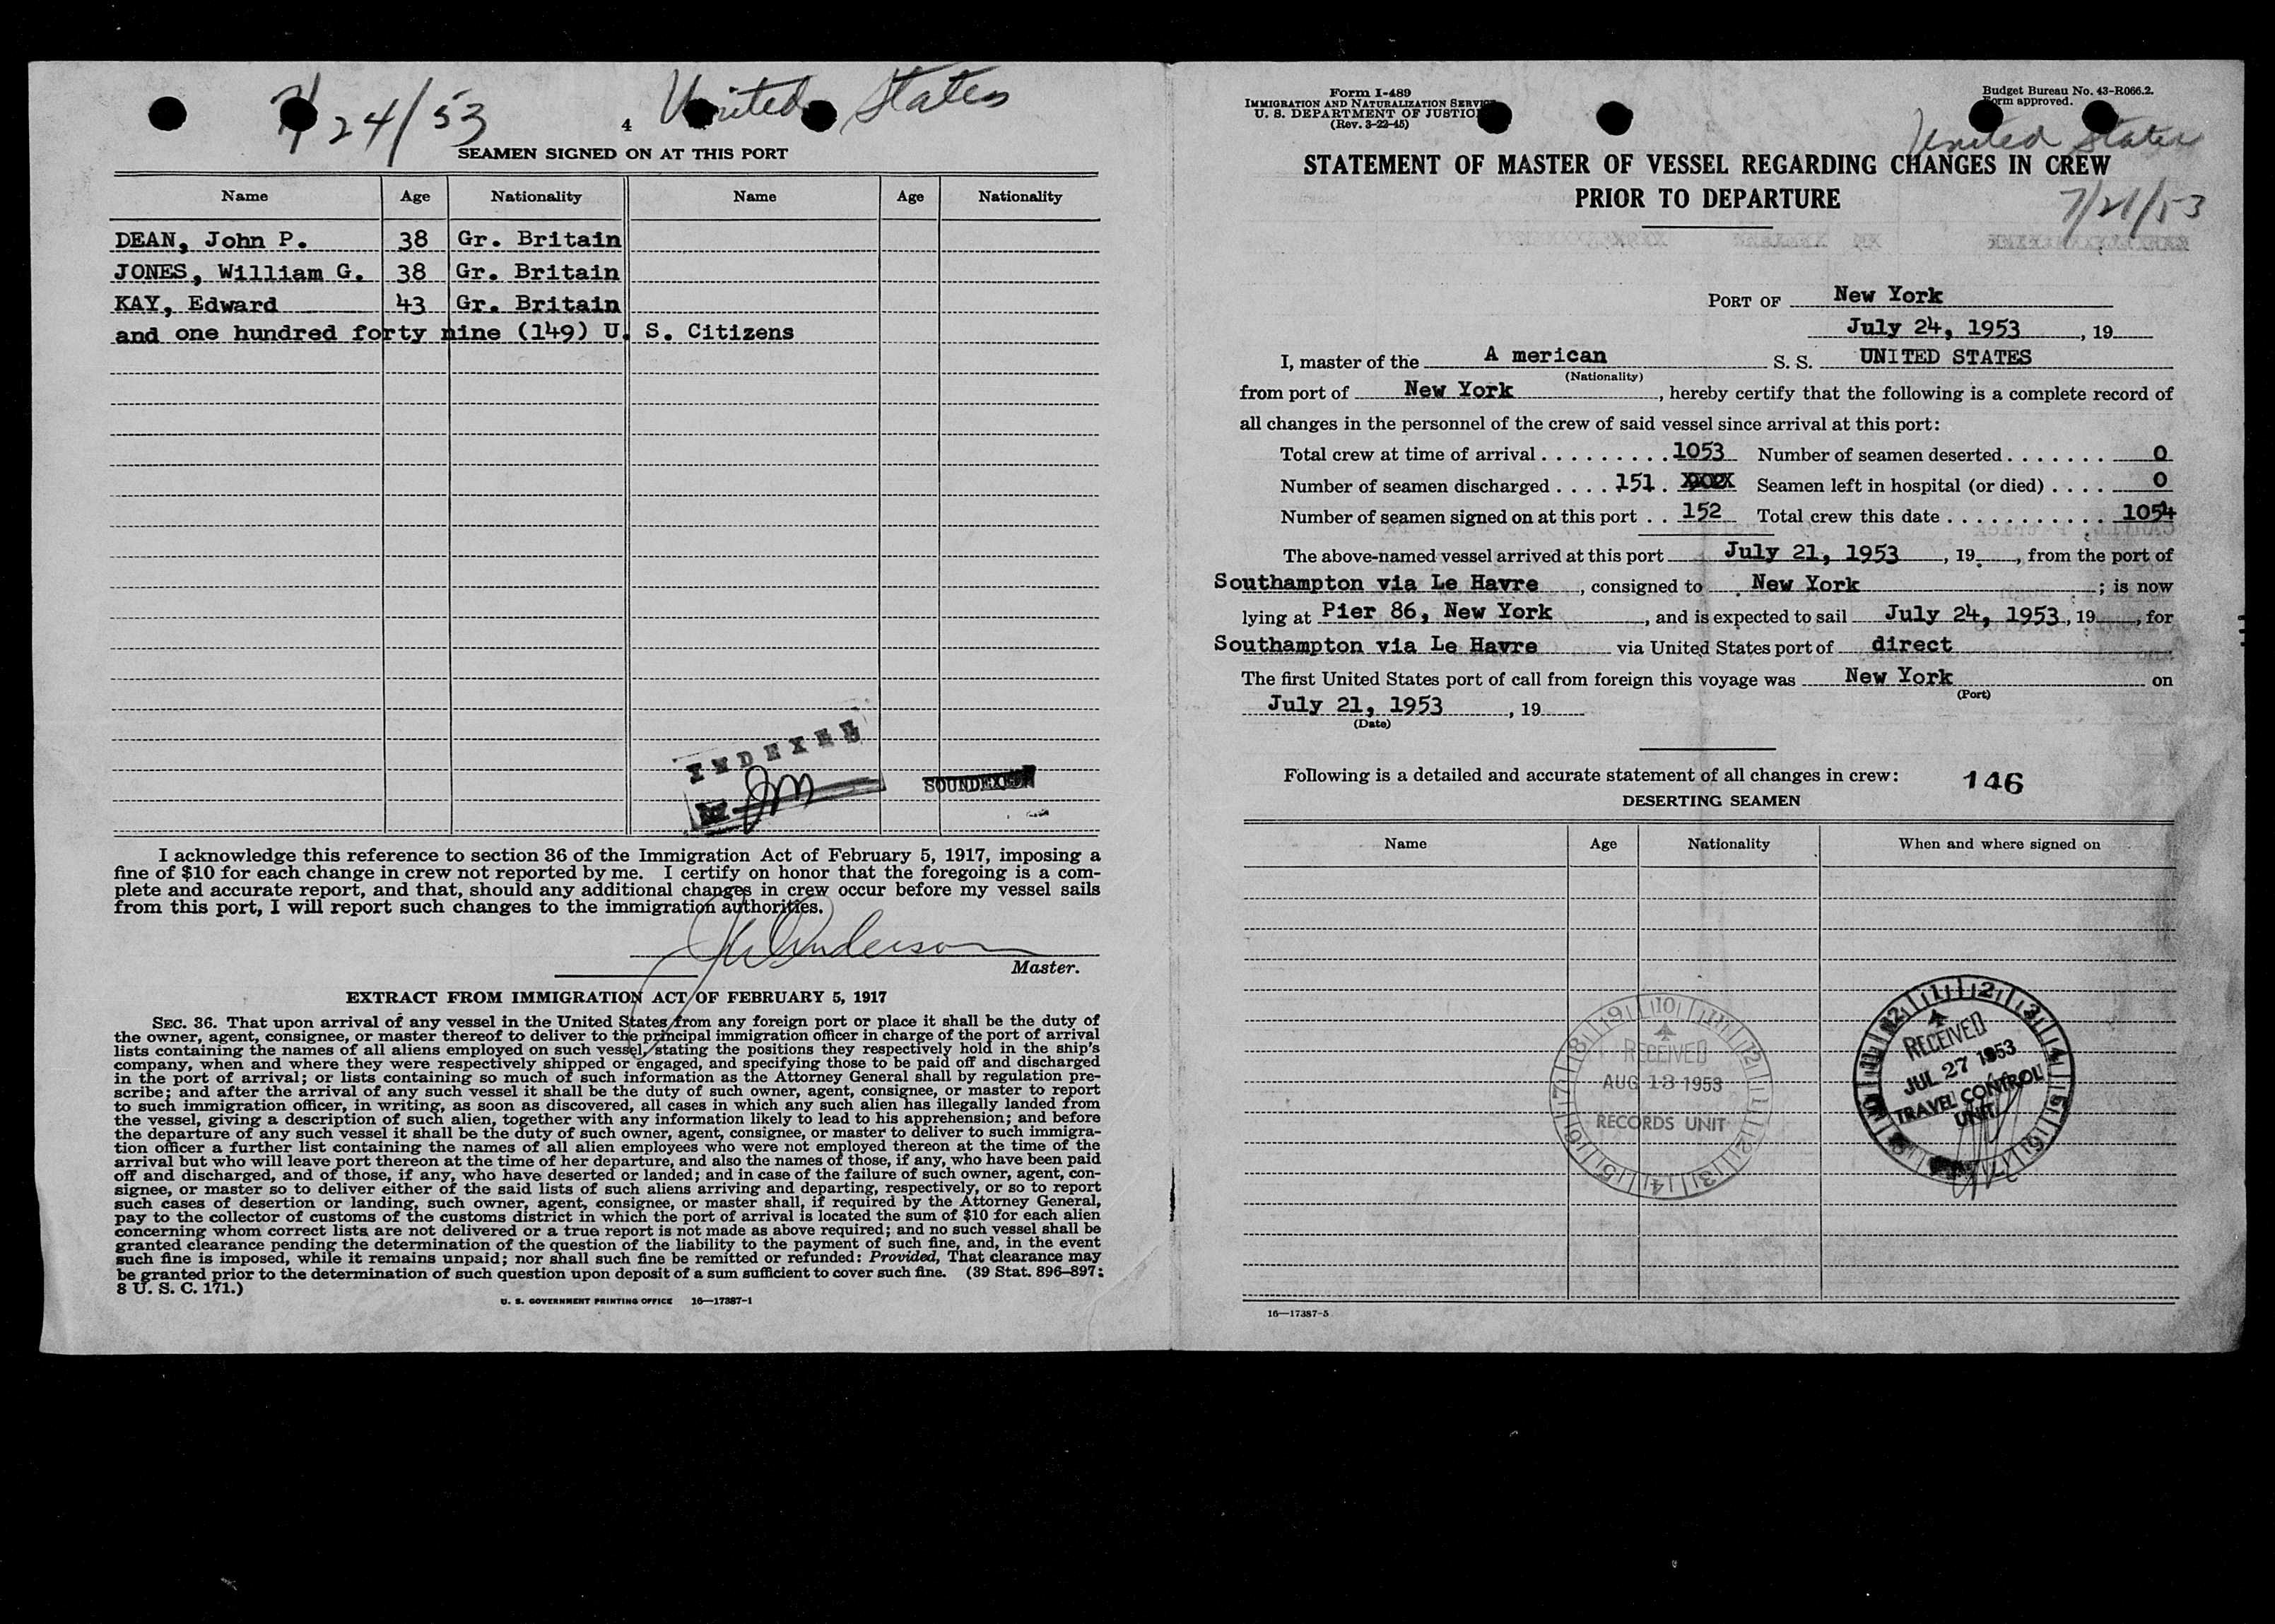 7/24/53 United States
4
SEAMEN SIGNED ON AT THIS PORT
Name Age Nationality Name Age Nationality
DEAN, John P. 38 Gr. Britain
JONES, William G. 38 Gr. Britain
KAY, Edward 43 Gr. Britain
and one hundred forty nine (149) U. S. Citizens
INDEXED
JM
SOUNDEXED
I acknowledge this reference to section 36 of the Immigration Act of February 5, 1917, imposing a
fine of $10 for each change in crew not reported by me. I certify on honor that the foregoing is a com-
plete and accurate report, and that, should any additional changes in crew occur before my vessel sails
from this port, I will report such changes to the immigration authorities.
JW Anderson
Master.
EXTRACT FROM IMMIGRATION ACT OF FEBRUARY 5, 1917
SEC. 36. That upon arrival of any vessel in the United States from any foreign port or place it shall be the duty of
the owner, agent, consignee, or master thereof to deliver to the principal immigration officer in charge of the port of arrival
lists containing the names of all aliens employed on such vessel, stating the positions they respectively hold in the ship's
company, when and where they were respectively shipped or engaged, and specifying those to be paid off and discharged
in the port of arrival; or lists containing so much of such information as the Attorney General shall by regulation pre-
scribe; and after the arrival of any such vessel it shall be the duty of such owner, agent, consignee, or master to report
to such immigration officer, in writing, as soon as discovered, all cases in which any such alien has illegally landed from
the vessel, giving a description of such alien, together with any information likely to lead to his apprehension; and before
the departure of any such vessel it shall be the duty of such owner, agent, consignee, or master to deliver to such immigra-
tion officer a further list containing the names of all alien employees who were not employed thereon at the time of the
arrival but who will leave port thereon at the time of her departure, and also the names of those, if any, who have been paid
off and discharged, and of those, if any, who have deserted or landed; and in case of the failure of such owner, agent, con-
signee, or master so to deliver either of the said lists of such aliens arriving and departing, respectively, or so to report
such cases of desertion or landing, such owner, agent, consignee, or master shall, if required by the Attorney General,
pay to the collector of customs of the customs district in which the port of arrival is located the sum of $10 for each alien
concerning whom correct lists are not delivered or a true report is not made as above required; and no such vessel shall be
granted clearance pending the determination of the question of the liability to the payment of such fine, and, in the event
such fine is imposed, while it remains unpaid; nor shall such fine be remitted or refunded: Provided, That clearance may
be granted prior to the determination of such question upon deposit of a sum sufficient to cover such fine. (39 Stat. 896–897;
8 U. S. C. 171.)
U. S. GOVERNMENT PRINTING OFFICE 16—17387-1
Form I-489
IMMIGRATION AND NATURALIZATION SERVICE
U. S. DEPARTMENT OF JUSTICE
(Rev. 3-22-45)
Budget Bureau No. 43-R066.2.
Form approved.
United States
STATEMENT OF MASTER OF VESSEL REGARDING CHANGES IN CREW
PRIOR TO DEPARTURE
7/21/53
PORT OF New York
July 24, 1953, 19
I, master of the A merican S. S. UNITED STATES
(Nationality)
from port of New York, hereby certify that the following is a complete record of
all changes in the personnel of the crew of said vessel since arrival at this port:
Total crew at time of arrival . . . . . . . . . 1053 Number of seamen deserted . . . . . . . 0
Number of seamen discharged . . . . 151 . X902X Seamen left in hospital (or died) . . . . 0
Number of seamen signed on at this port . . 152 Total crew this date . . . . . . . . . . . . 1054
The above-named vessel arrived at this port July 21, 1953, 19, from the port of
Southampton via Le Havre, consigned to New York; is now
lying at Pier 86, New York, and is expected to sail July 24, 1953, 19, for
Southampton via Le Havre via United States port of direct
The first United States port of call from foreign this voyage was New York on
(Port)
July 21, 1953, 19
(Date)
Following is a detailed and accurate statement of all changes in crew: 146
DESERTING SEAMEN
Name Age Nationality When and where signed on
RECEIVED
AUG 13 1953
RECORDS UNIT
RECEIVED
JUL 27 1953
TRAVEL CONTROL
UNIT
16—17387-5